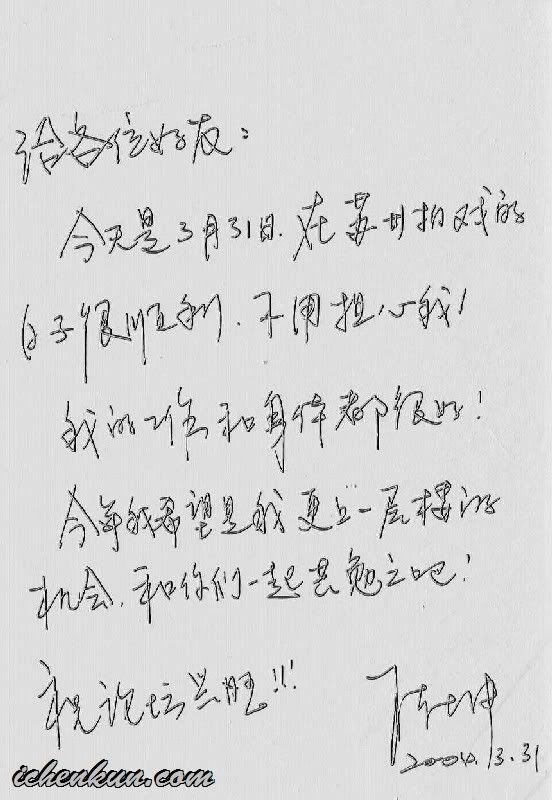 给各位好友：
今天是3月31日.在苏州拍戏的
日子很顺利.不用担心我！
我的工作和身体都很好！
今年我希望是我更上一层楼的
机会.和你们一起共勉之吧！
祝论坛兴旺!!!
陈坤
2004.3.31
ichenkun.com